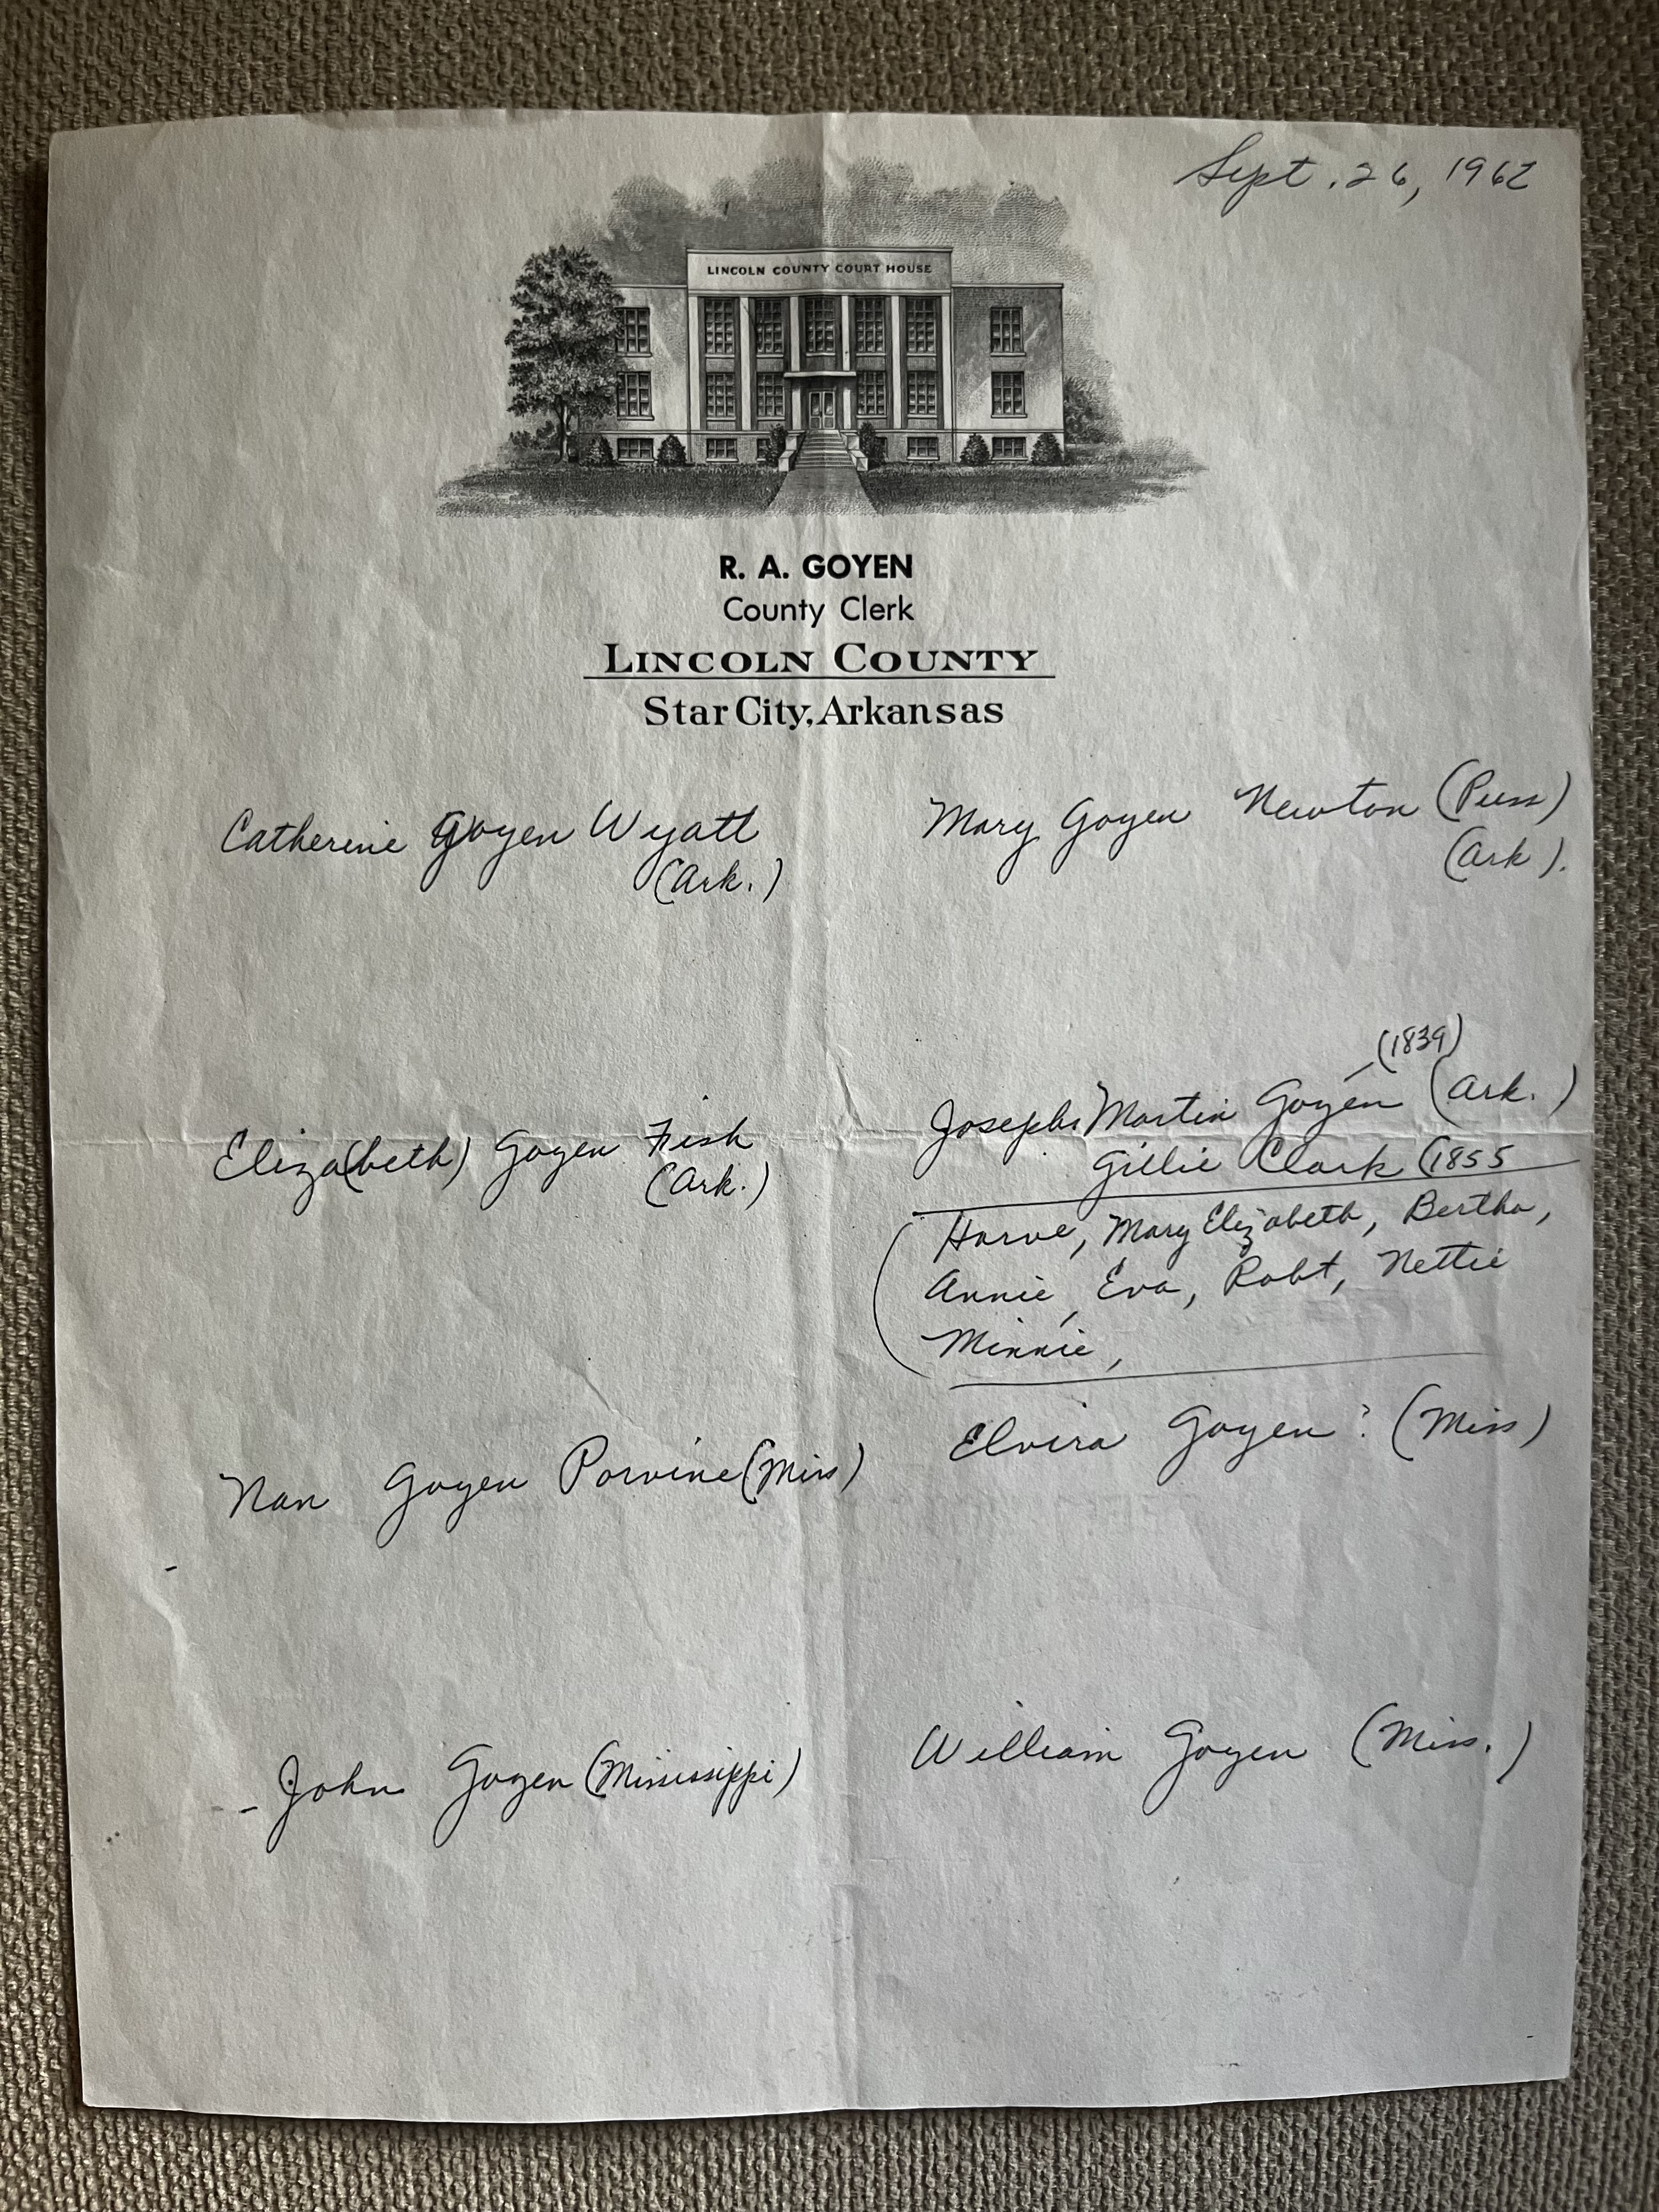 Sept. 26, 1962
LINCOLN COUNTY COURT HOUSE
R. A. GOYEN
County Clerk
LINCOLN COUNTY
Star City, Arkansas
Catherine Goyen Wyatt
(Ark.)
Mary Goyen Newton (Puss)
(Ark).
Eliza(beth) Goyen Fish
(Ark.)
(1839)
Joseph Martin Goyen (Ark.)
Gillie Clark (1855
Harve, Mary Elizabeth, Bertha,
Annie, Eva, Robt, Nettie
Minnie,
Nan Goyen Porvine (Miss)
Elvira Goyen? (Miss)
- John Goyen (Mississippi)
William Goyen (Miss.)